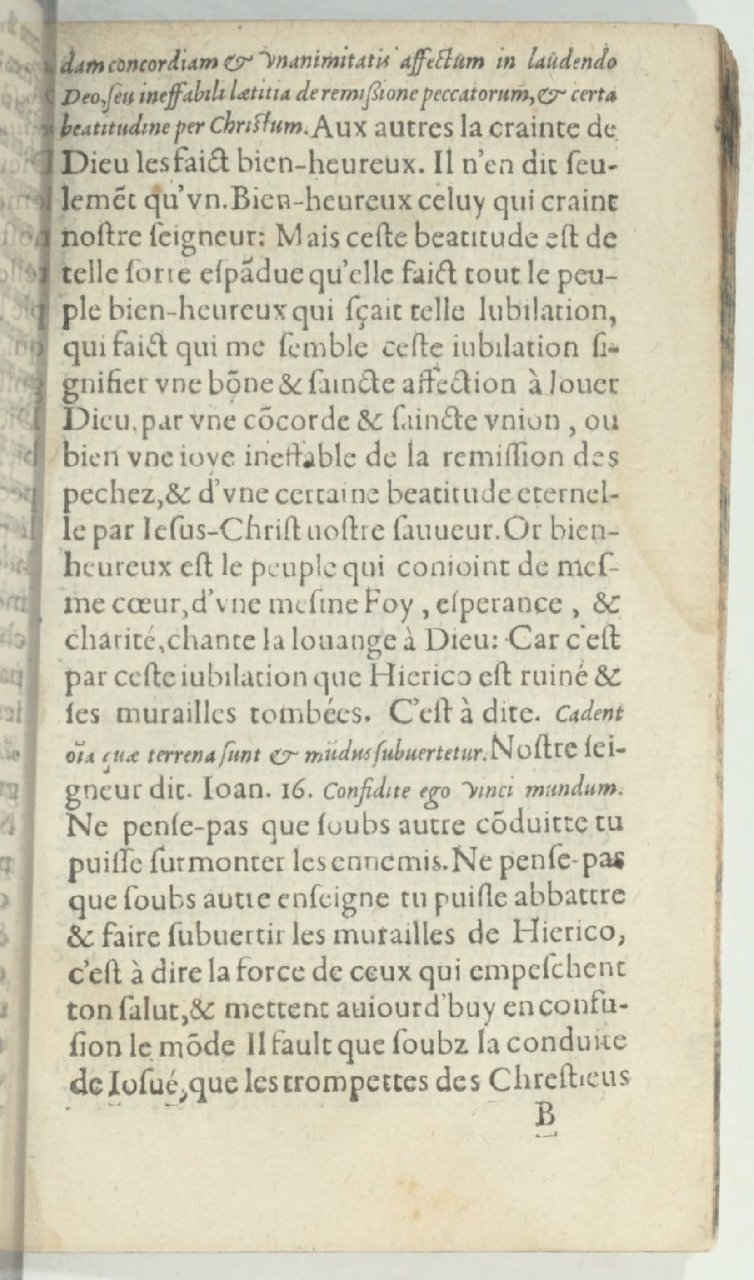 dam concordiam & vnanimitatis affectum in laudendo
Deo, seu ineffabili lætitia de remißione peccatorum̃, & certa
beatitudine per Christum. Aux autres la crainte de
Dieu les faict bien-heureux. Il n'en dit ſeu-
lemẽt qu'vn. Bien-heureux celuy qui craint
noſtre ſeigneur: Mais ceſte beatitude eſt de
telle ſorte eſpãdue qu'elle faict tout le peu-
ple bien-heureux qui ſçait telle Iubilation,
qui faict qui me ſemble ceſte iubilation ſi-
gnifier vne bõne & ſaincte affection à louer
Dieu, par vne cõcorde & ſaincte vnion, ou
bien vne ioye ineffable de la remiſſion des
pechez, & d'vne certaine beatitude eternel-
le par Ieſus-Chriſt noſtre ſauueur. Or bien-
heureux eſt le peuple qui conioint de meſ-
me cœur, d'vne meſme Foy, eſperance, &
charité, chante la louange à Dieu: Car c'eſt
par ceſte iubilation que Hierico eſt ruiné &
ſes murailles tombées. C'eſt à dire. Cadent
oĩa quæ terrena ſunt & mũdus ſubuertetur. Noſtre ſei-
gneur dit. Ioan. 16. Confidite ego vinci mundum.
Ne penſe-pas que ſoubs autre cõduitte tu
puiſſe ſurmonter les ennemis. Ne penſe-pas
que ſoubs autre enſeigne tu puiſſe abbattre
& faire ſubuertir les murailles de Hierico,
c'eſt à dire la force de ceux qui empeſchent
ton ſalut, & mettent auiourd'huy en confu-
ſion le mõde Il fault que ſoubz la conduite
de Ioſué, que les trompettes des Chreſtiens
B